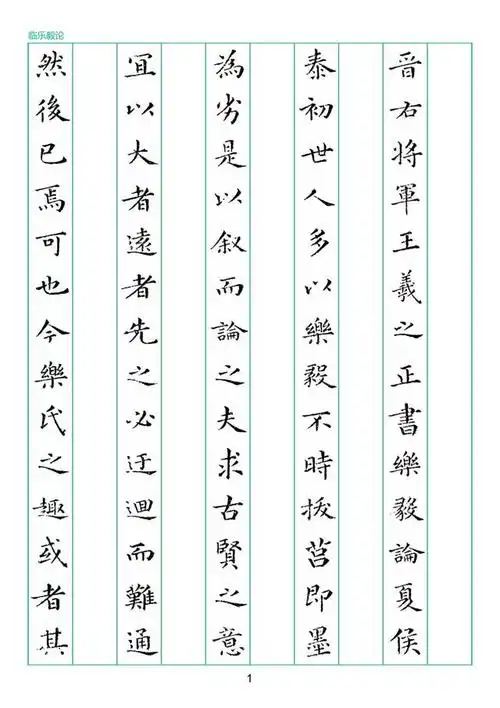 临乐毅论
晋右将軍王羲之正書樂毅論夏侯
泰初世人多以樂毅不時拔莒即墨
為劣是以叙而論之夫求古賢之意
宜以大者遠者先之必迂迴而難通
然後已焉可也今樂氏之趣或者其
1